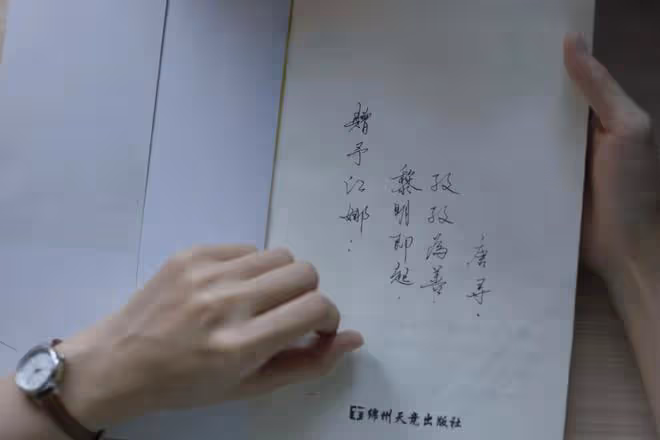 赠予江娜：
黎明即起，
孜孜為善
唐寻.
绵州天竞出版社